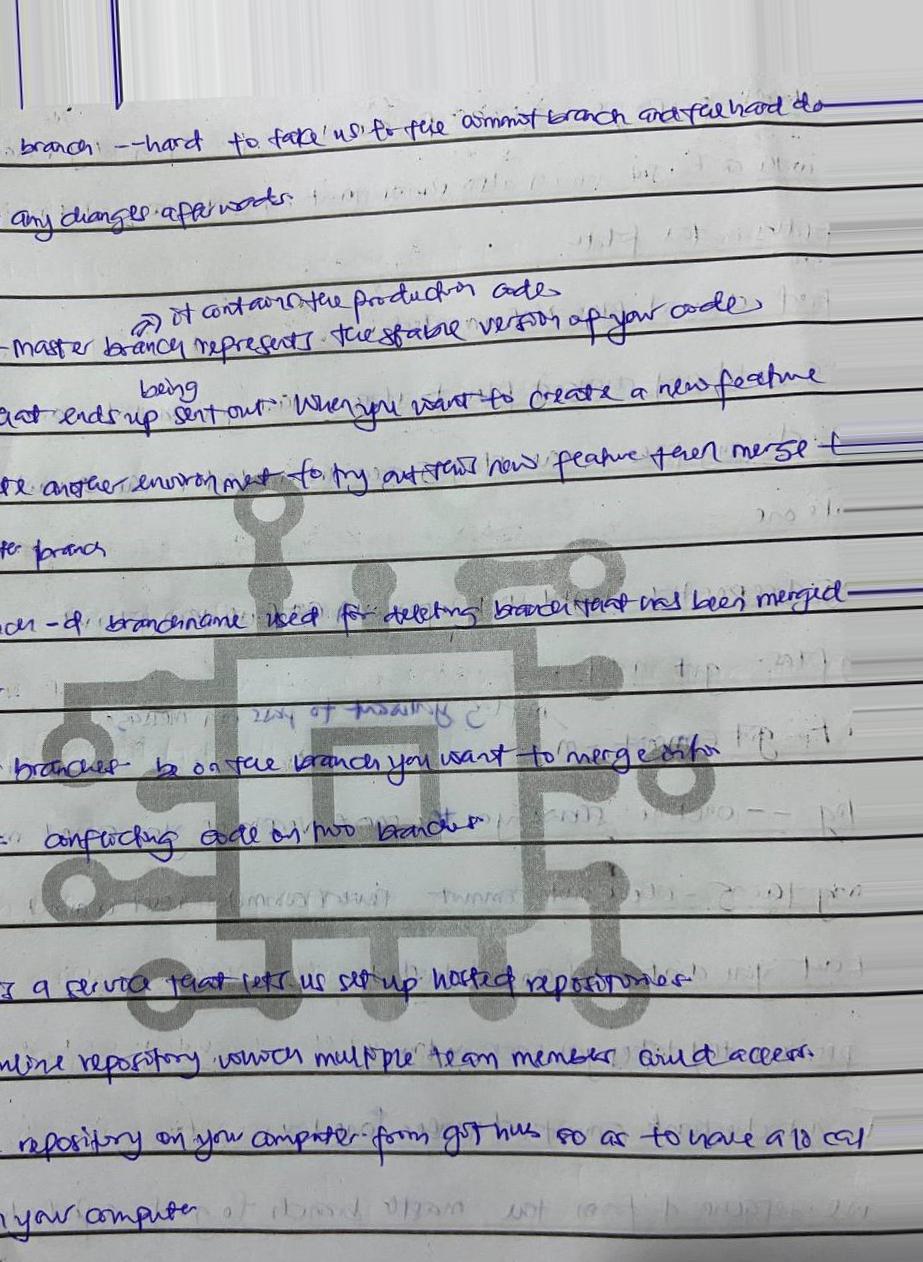 branch --hard to take us to the commit branch and the hard do
any changes afterwards.
→ it contains the production code
-Master branch represents the stable version of your code
being
ends up sent out. When you want to create a new feature
another environment to try out this new feature then merge t
branch
-d branchname used for deleting branch that has been merged
branches be on the branch you want to merge onto
conflicting code on two branches
a service that lets us set up hosted repositories
repository which multiple team members and access.
repository on you computer from github so as to have a local
your computer